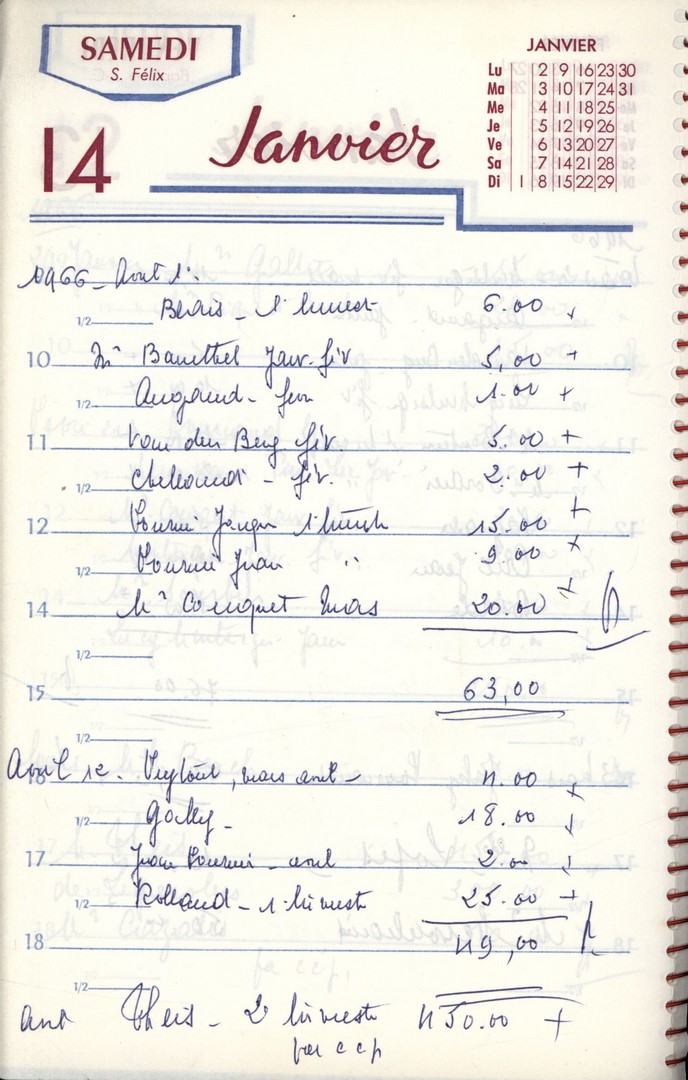 SAMEDI
S. Félix
14
Janvier
JANVIER
Lu 2 9 16 23 30
Ma 3 10 17 24 31
Me 4 11 18 25
Je 5 12 19 26
Ve 6 13 20 27
Sa 7 14 21 28
Di 1 8 15 22 29
1966 - Avril 1.
1/2 - 1 trimest 6.00 +
10 Mr Janv. fév 5,00 +
1/2 Augand - 1.00 +
11 Van den Berg fév. 5.00 +
1/2 - fév. 2.00 +
12 1 trimest 15.00 +
1/2 Jean " 9.00 +
14 Mr Couquet mars 20.00 +
1/2
15 63,00
1/2
Avril 12. , mars avril - 4.00 +
16
1/2 Golly - 18.00 +
17 Jean - avril 2.00 +
1/2 Rolland - 1 trimestre 25.00 +
18 49,00
1/2
Theis - 2e trimestre 450.00 +
par ccp